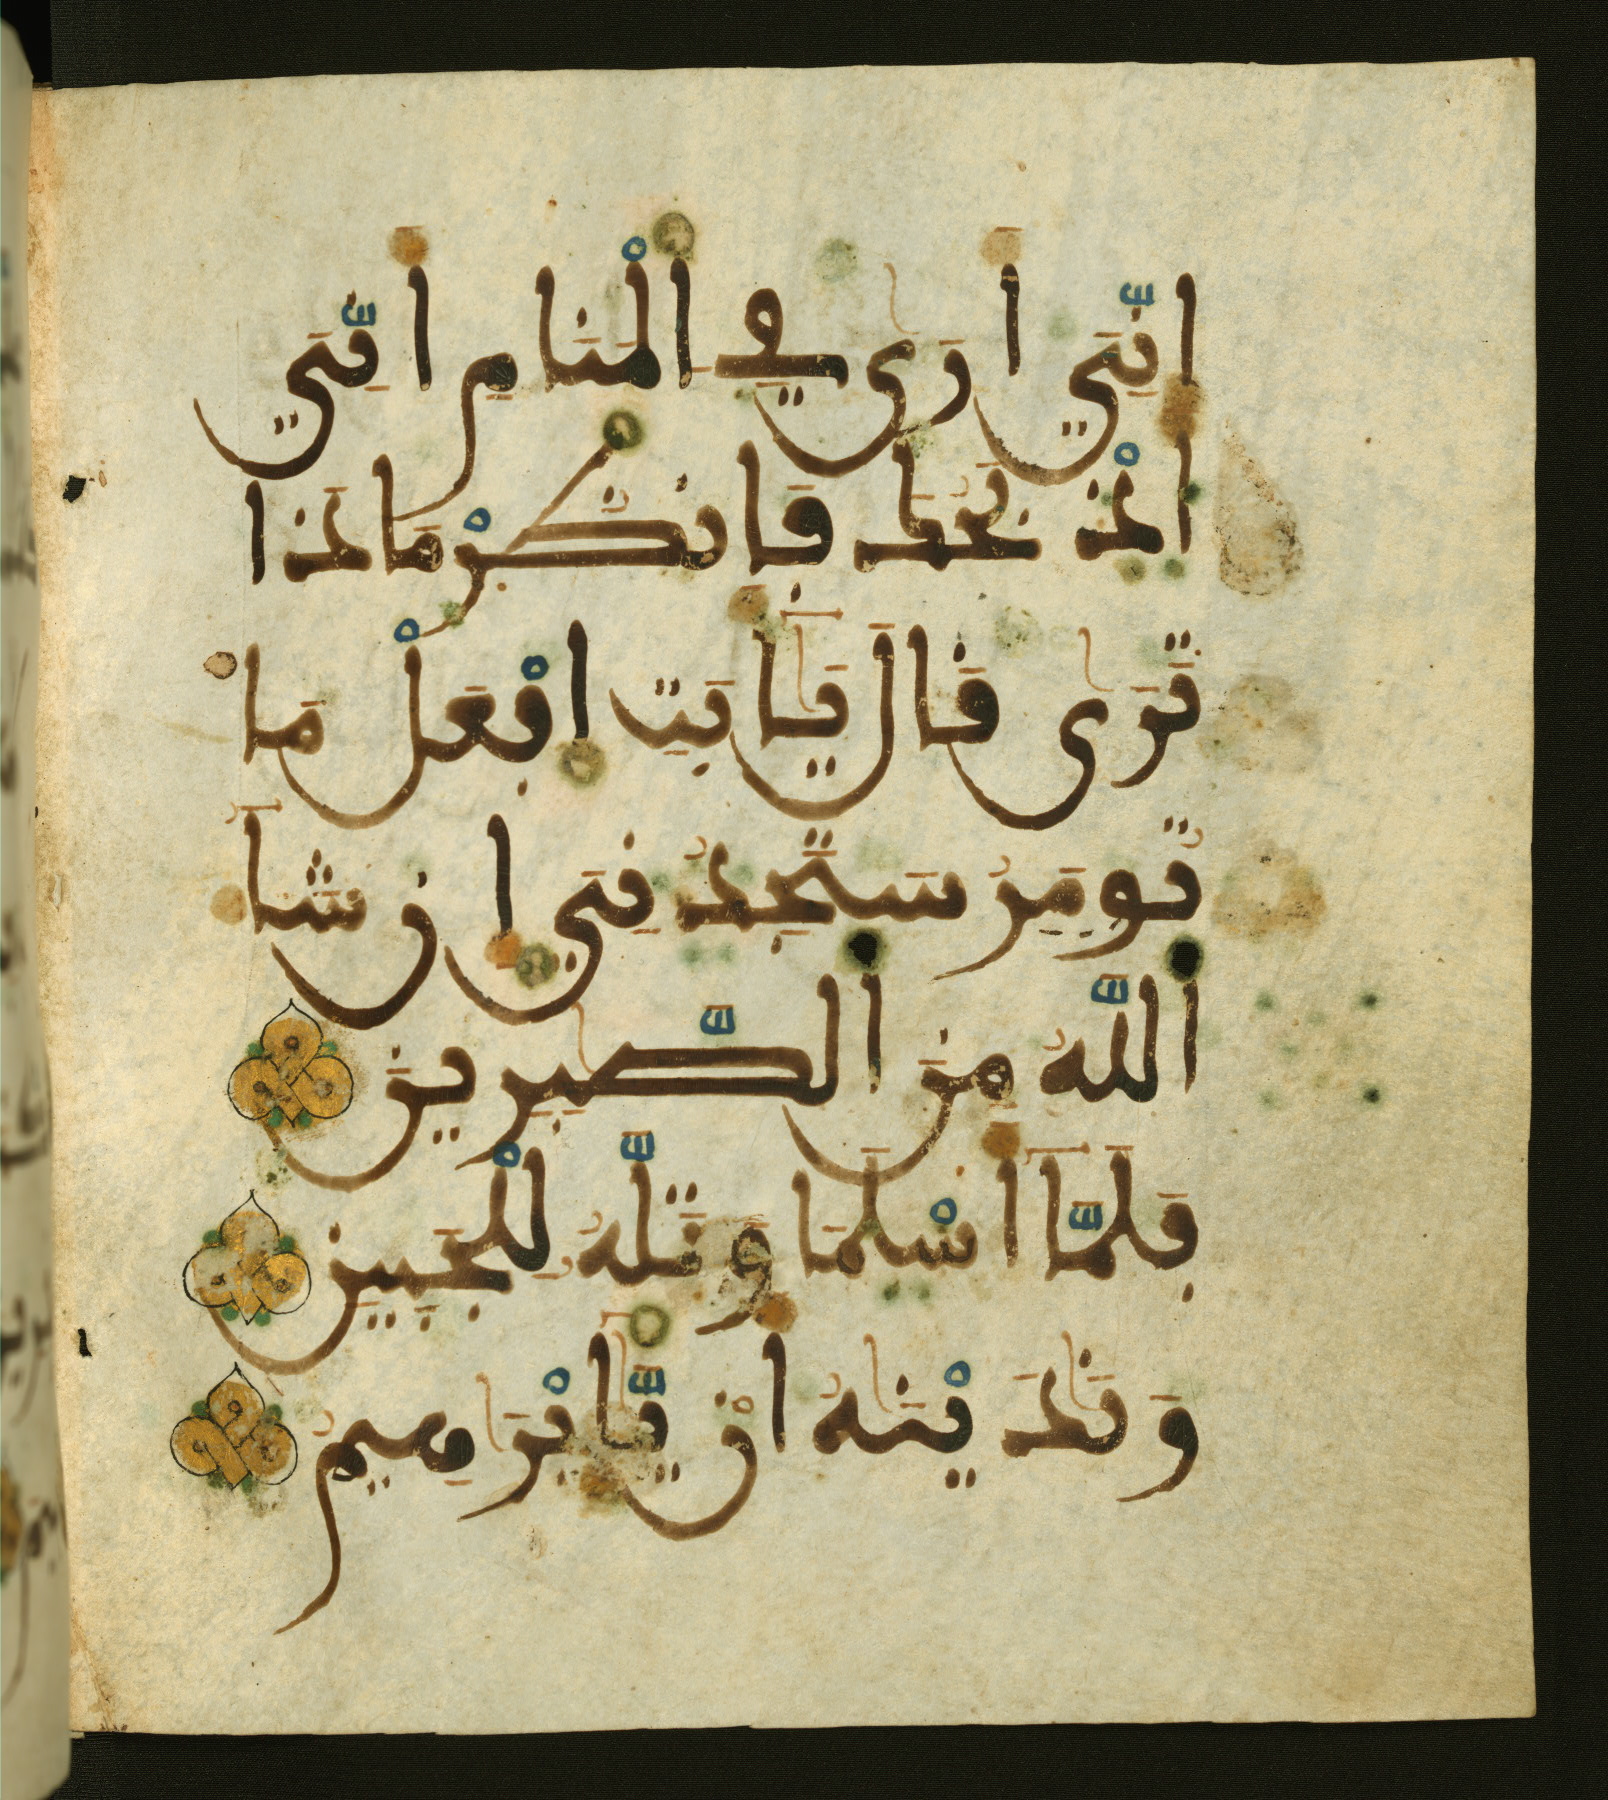 إِنِّيَ أَرَىٰ فِي الْمَنَامِ أَنِّيَ
أَذْبَحُكَ فَانظُرْ مَاذَا
تَرَىٰ قَالَ يَٰٓأَبَتِ افْعَلْ مَا
تُومَرُ سَتَجِدُنِيَ إِن شَآءَ
اللَّهُ مِنَ الصَّٰبِرِينَ
فَلَمَّآ أَسْلَمَا وَتَلَّهُ لِلْجَبِينِ
وَنَٰدَيْنَٰهُ أَنْ يَّٰٓإِبْرَٰهِيمُ